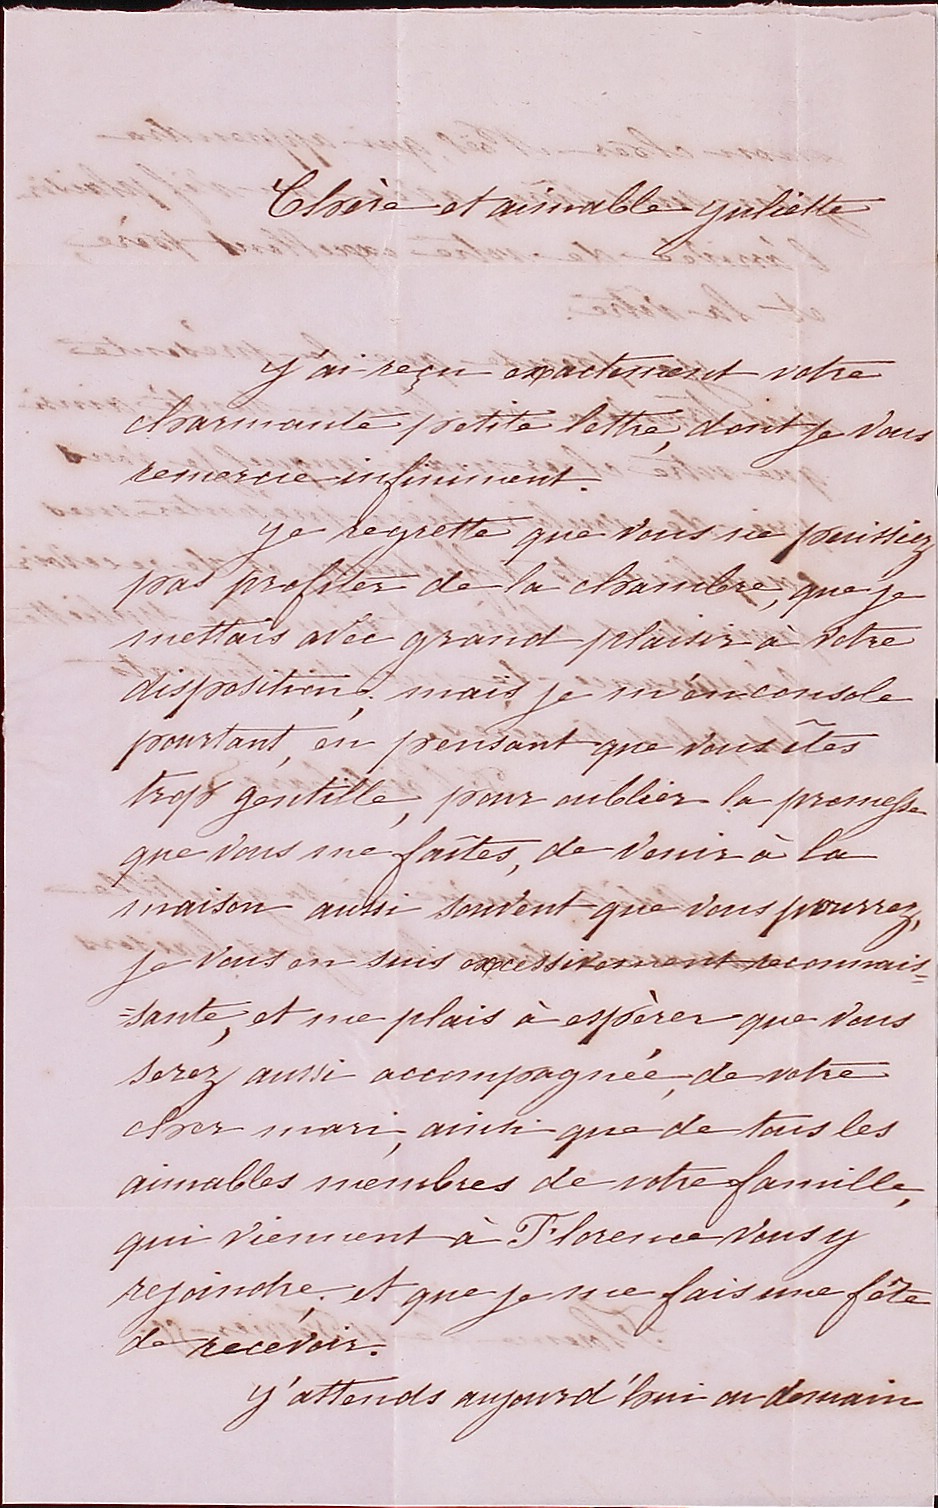 Chère et aimable Juliette
J'ai reçu exactement votre
charmante petite lettre, dont je vous
remercie infiniment.
Je regrette que vous ne puissiez
pas profiter de la chambre, que je
mettais avec grand plaisir à votre
disposition; mais je m'en console
pourtant, en pensant que vous êtes
trop gentille, pour oublier la promesse
que vous me faîtes, de venir à la
maison aussi souvent que vous pourrez,
je vous en suis excessivement reconnais=
=sante, et me plais à espèrer que vous
serez aussi accompagnée, de votre
cher mari, ainsi que de tous les
aimables membres de votre famille,
qui viennent à Florence vous y
rejoindre, et que je me fais une fête
de recevoir.
J'attends aujourd'hui ou demain